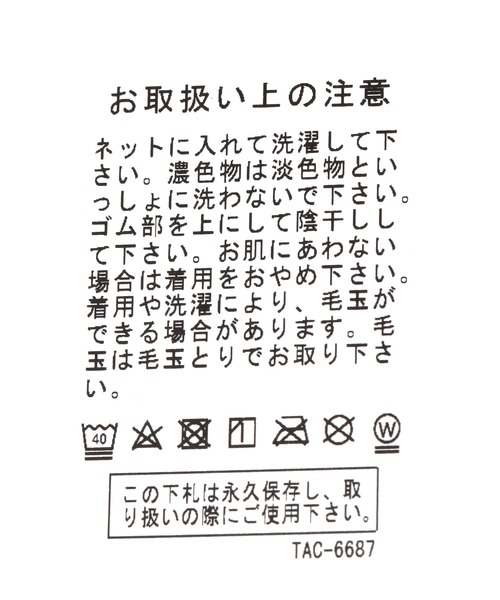 お取扱い上の注意
ネットに入れて洗濯して下
さい。濃色物は淡色物とい
っしょに洗わないで下さい。
ゴム部を上にして陰干しし
て下さい。お肌にあわない
場合は着用をおやめ下さい。
着用や洗濯により、毛玉が
できる場合があります。毛
玉は毛玉とりでお取り下さ
い。
40 W
この下札は永久保存し、取
り扱いの際にご使用下さい。
TAC-6687